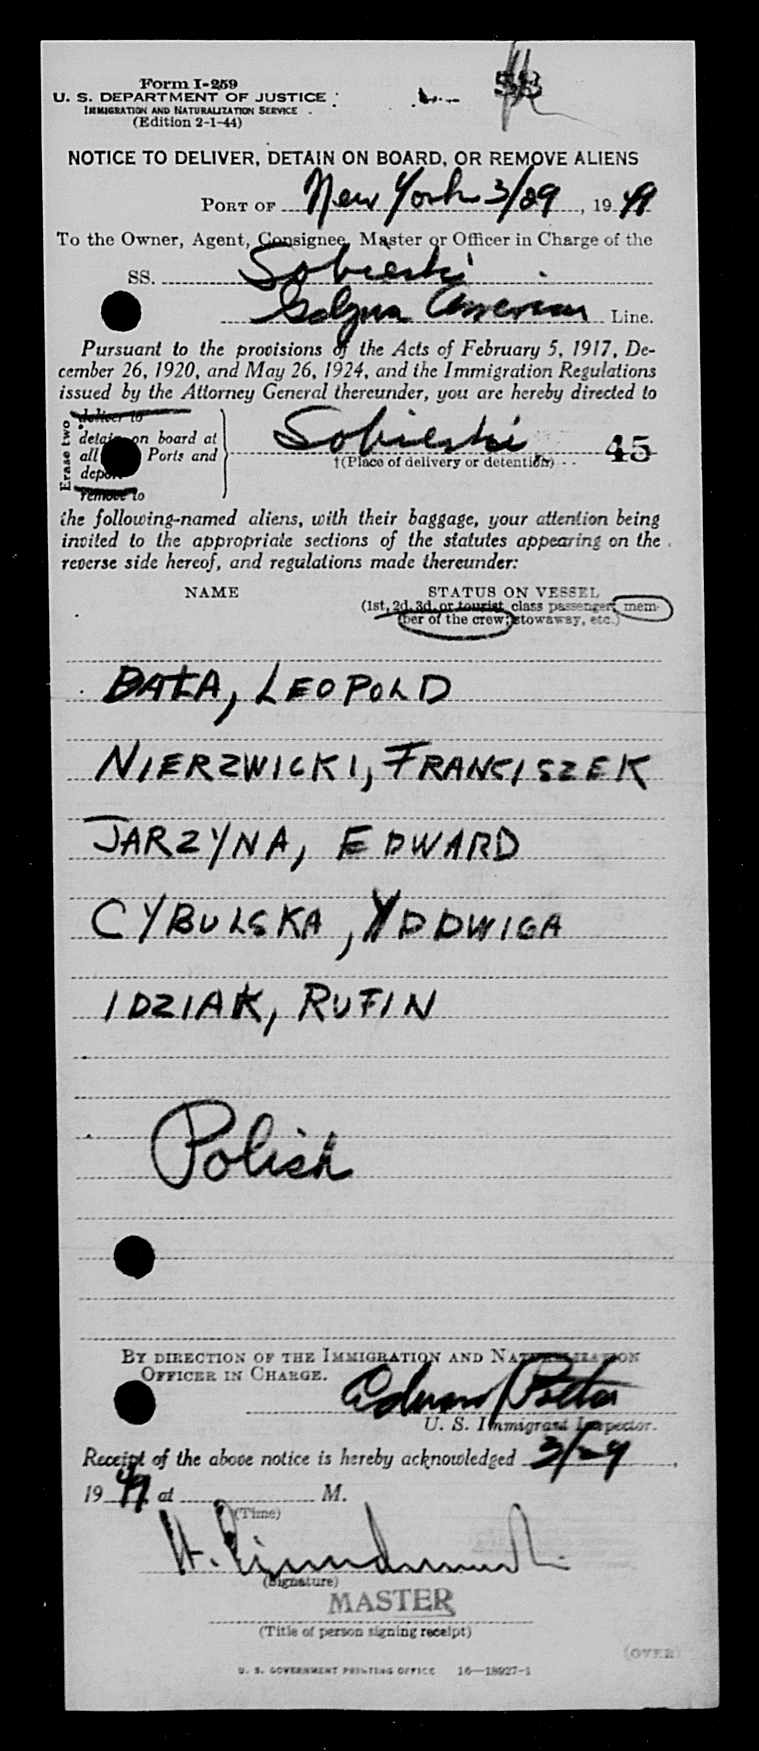 Form I-259
U. S. DEPARTMENT OF JUSTICE
IMMIGRATION AND NATURALIZATION SERVICE
(Edition 2-1-44)
58
NOTICE TO DELIVER, DETAIN ON BOARD, OR REMOVE ALIENS
PORT OF New York 3/29, 1949
To the Owner, Agent, Consignee, Master or Officer in Charge of the
SS. Sobieski
Gdynia American Line.
Pursuant to the provisions of the Acts of February 5, 1917, De-
cember 26, 1920, and May 26, 1924, and the Immigration Regulations
issued by the Attorney General thereunder, you are hereby directed to
Erase two
deliver to
detain on board at
all Ports and
deport
remove to
Sobieski 45
†(Place of delivery or detention)
the following-named aliens, with their baggage, your attention being
invited to the appropriate sections of the statutes appearing on the
reverse side hereof, and regulations made thereunder:
NAME STATUS ON VESSEL
(1st, 2d, 3d, or tourist class passenger; mem-
ber of the crew; stowaway, etc.)
BAŁA, LEOPOLD
NIERZWICKI, FRANCISZEK
JARZYNA, EDWARD
CYBULSKA, YDDWIGA
IDZIAK, RUFIN
Polish
BY DIRECTION OF THE IMMIGRATION AND NATURALIZATION
OFFICER IN CHARGE.
U. S. Immigrant Inspector.
Receipt of the above notice is hereby acknowledged 3/29,
1949 at M.
(Time)
(Signature)
MASTER
(Title of person signing receipt)
(OVER)
U. S. GOVERNMENT PRINTING OFFICE 16—18927-1